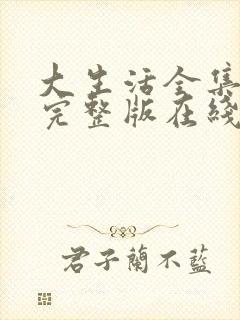 大生活全集
完整版在綫
君子蘭不藍